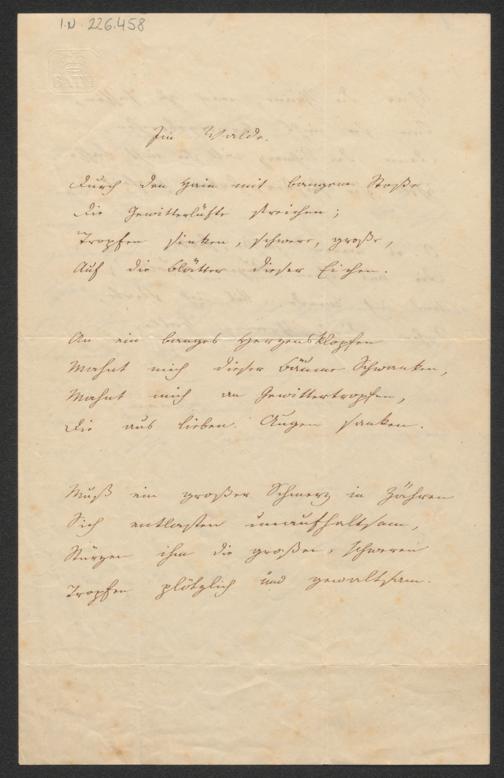 I.N. 226.458
Im Walde.
Durch den Hain mit bangem Stoße
Die Gewitterlüfte streichen;
Tropfen sinken, schwere, große,
Auf die Blätter dieser Eichen.
An ein banges Herzensklopfen
Mahnt mich dieser Bäume Schwanken,
Mahnt mich an Gewittertropfen,
Die aus lieben Augen sanken.
Muß ein großer Schmerz in Zähren
Sich entlasten unaufhaltsam,
Stürzen ihm die großen, schweren
Tropfen plötzlich und gewaltsam.